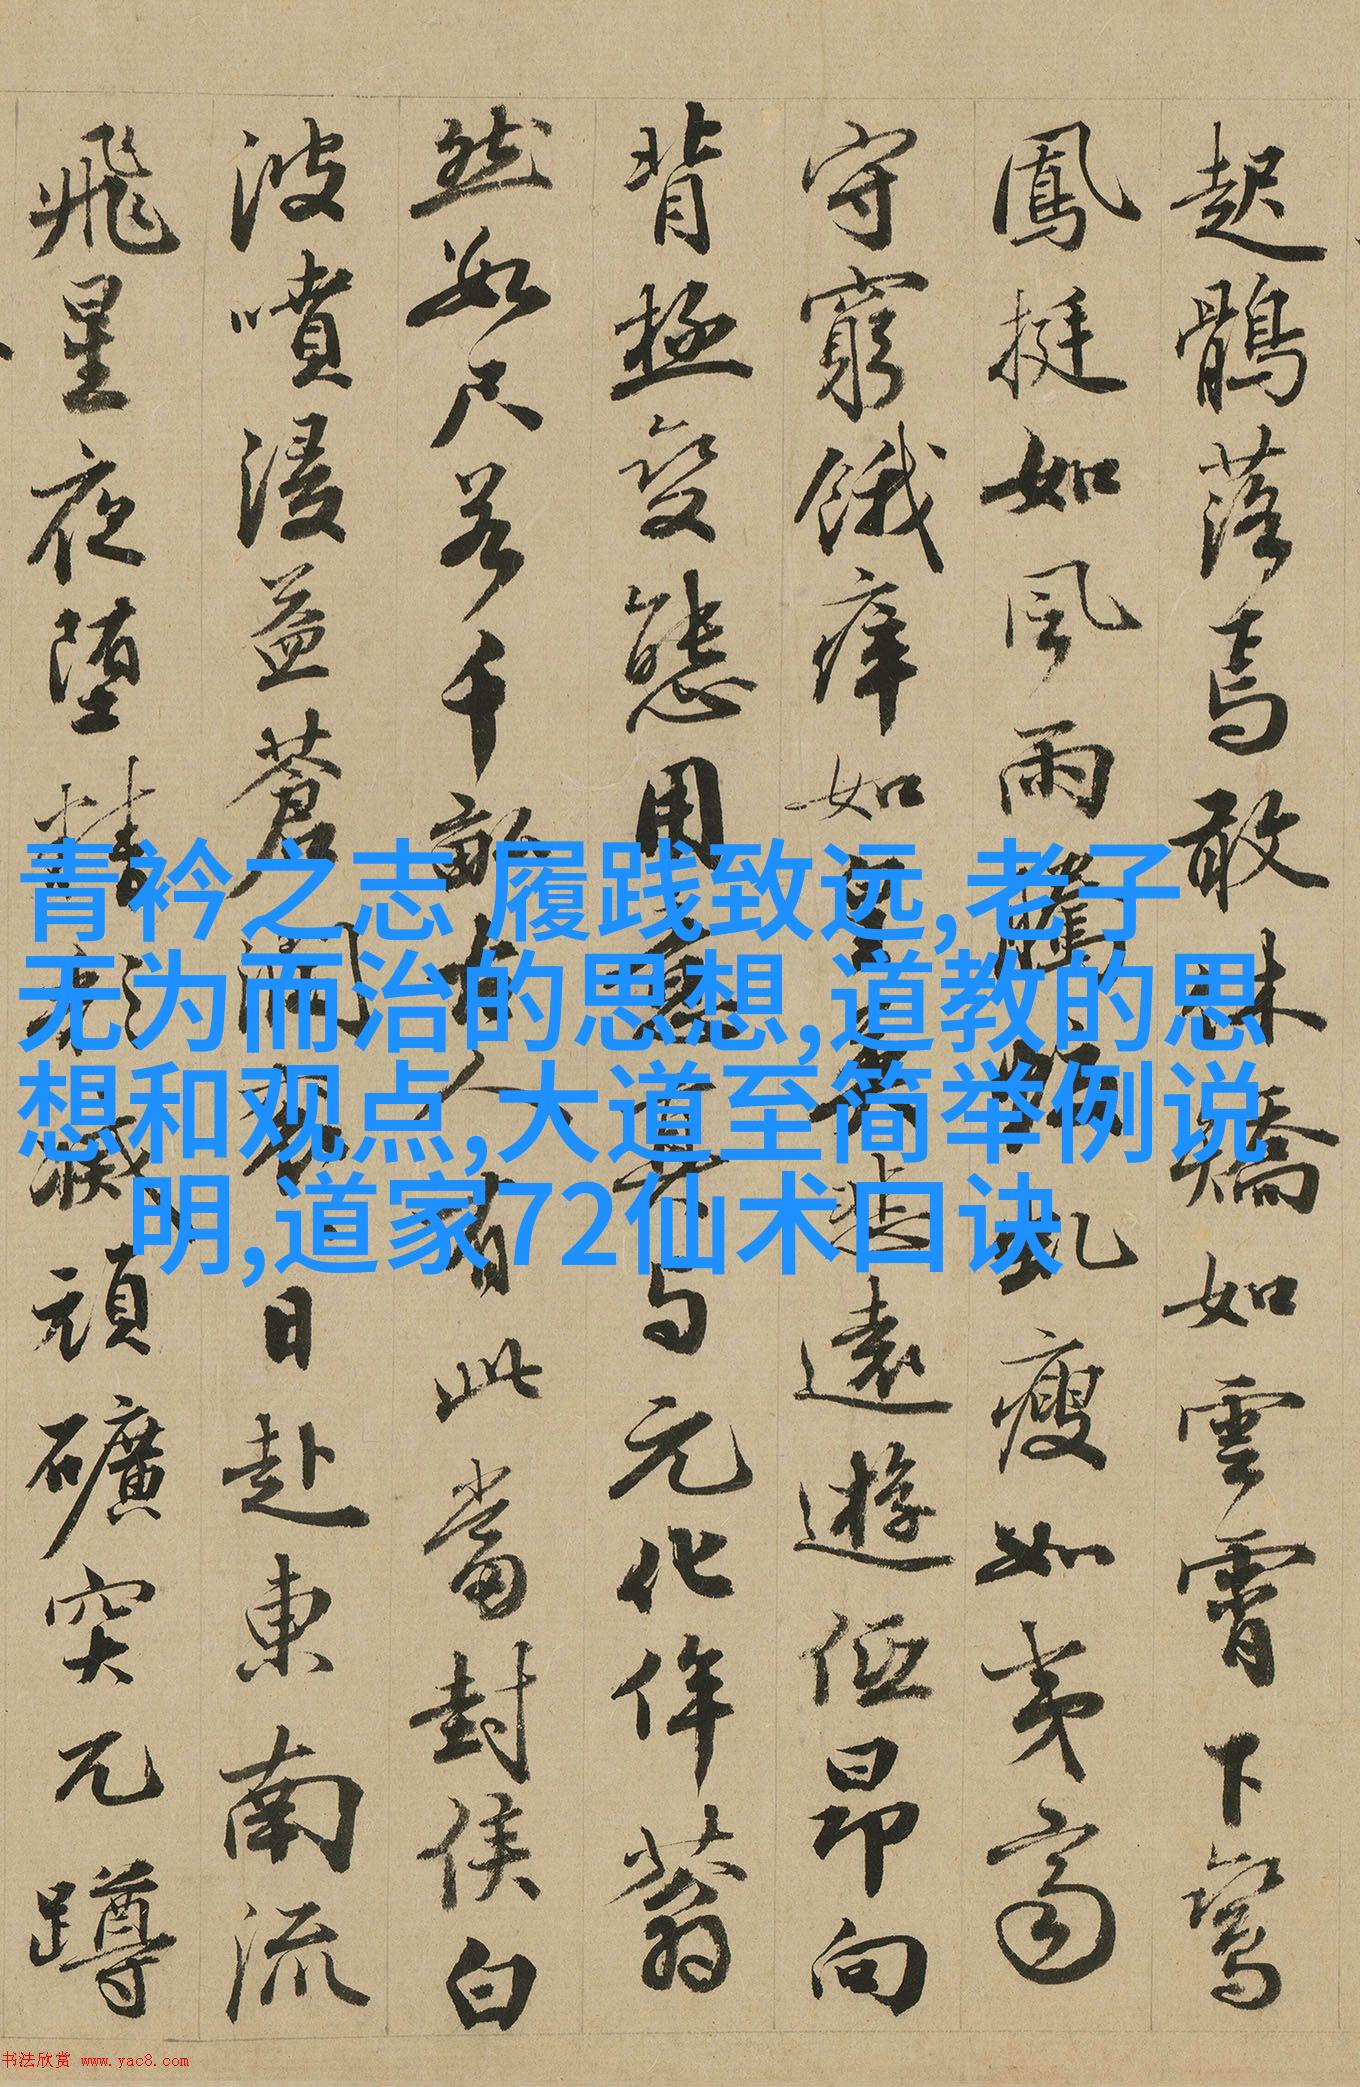 起鶻落焉敢妹矯如雲霄下鸞
鳳挺如風雨騰瘦如夷齊
守窮餓痒如悲遠遊低昂向
背極變態用與元化侔
然數尺若千畝古人有此當封侯白
波噴浸益蒼潤觀日赴東南流
飛星夜堕精減頑礦突兀蹲
青衿之志 履践致远,老子
无为而治的思想,道教的思
想和观点,大道至简举例说
明,道家72仙术口诀
书法欣赏 www.yac8.com